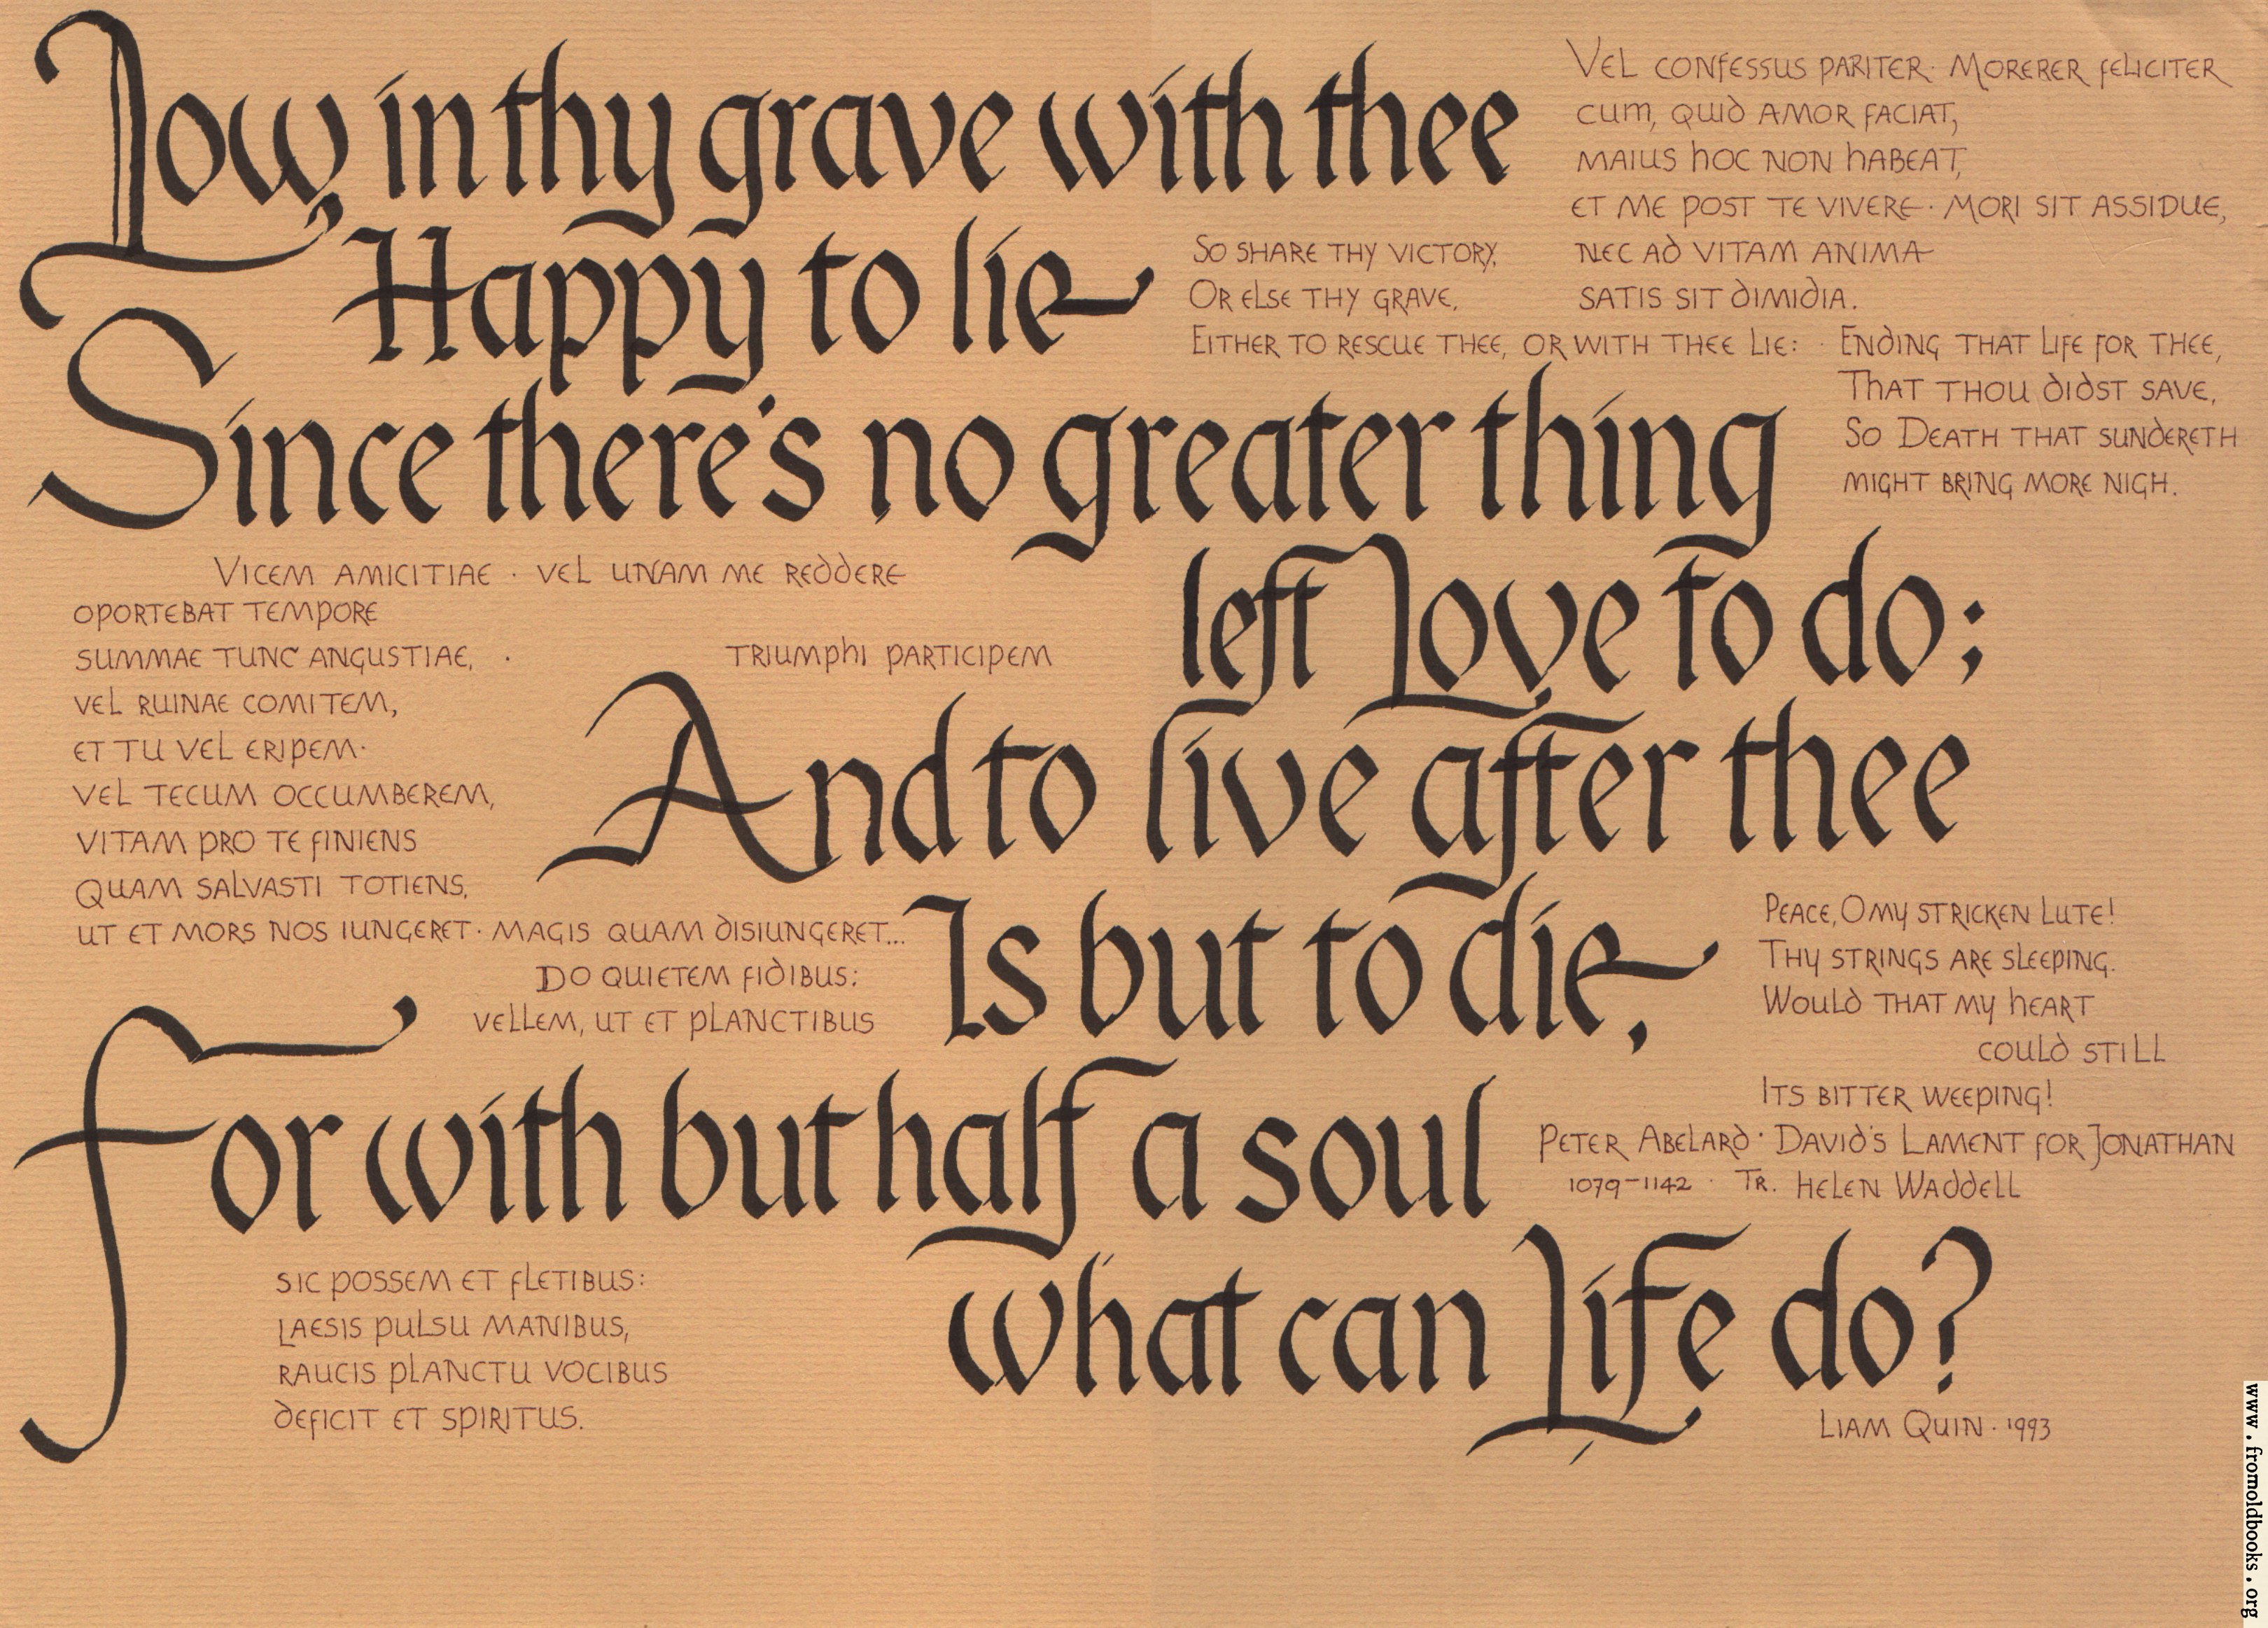 Low, in thy grave with thee
Happy to lie
Since there's no greater thing
left Love to do;
And to live after thee
Is but to die,
For with but half a soul
what can Life do?
VEL CONFESSUS PARITER · MORERER FELICITER
CUM, QUID AMOR FACIAT,
MAIUS HOC NON HABEAT,
ET ME POST TE VIVERE · MORI SIT ASSIDUE,
NEC AD VITAM ANIMA
SATIS SIT DIMIDIA.
SO SHARE THY VICTORY,
OR ELSE THY GRAVE,
EITHER TO RESCUE THEE, OR WITH THEE LIE: · ENDING THAT LIFE FOR THEE,
THAT THOU DIDST SAVE,
SO DEATH THAT SUNDERETH
MIGHT BRING MORE NIGH.
VICEM AMICITIAE · VEL UNAM ME REDDERE
OPORTEBAT TEMPORE
SUMMAE TUNC ANGUSTIAE, ·
TRIUMPHI PARTICIPEM
VEL RUINAE COMITEM,
ET TU VEL ERIPEM·
VEL TECUM OCCUMBEREM,
VITAM PRO TE FINIENS
QUAM SALVASTI TOTIENS,
UT ET MORS NOS IUNGERET · MAGIS QUAM DISIUNGERET...
DO QUIETEM FIDIBUS:
VELLEM, UT ET PLANCTIBUS
SIC POSSEM ET FLETIBUS:
LAESIS PULSU MANIBUS,
RAUCIS PLANCTU VOCIBUS
DEFICIT ET SPIRITUS.
PEACE, O MY STRICKEN LUTE!
THY STRINGS ARE SLEEPING.
WOULD THAT MY HEART
COULD STILL
ITS BITTER WEEPING!
PETER ABELARD · DAVID'S LAMENT FOR JONATHAN
1079-1142 · TR. HELEN WADDELL
LIAM QUIN · 1993
www.fromoldbooks.org